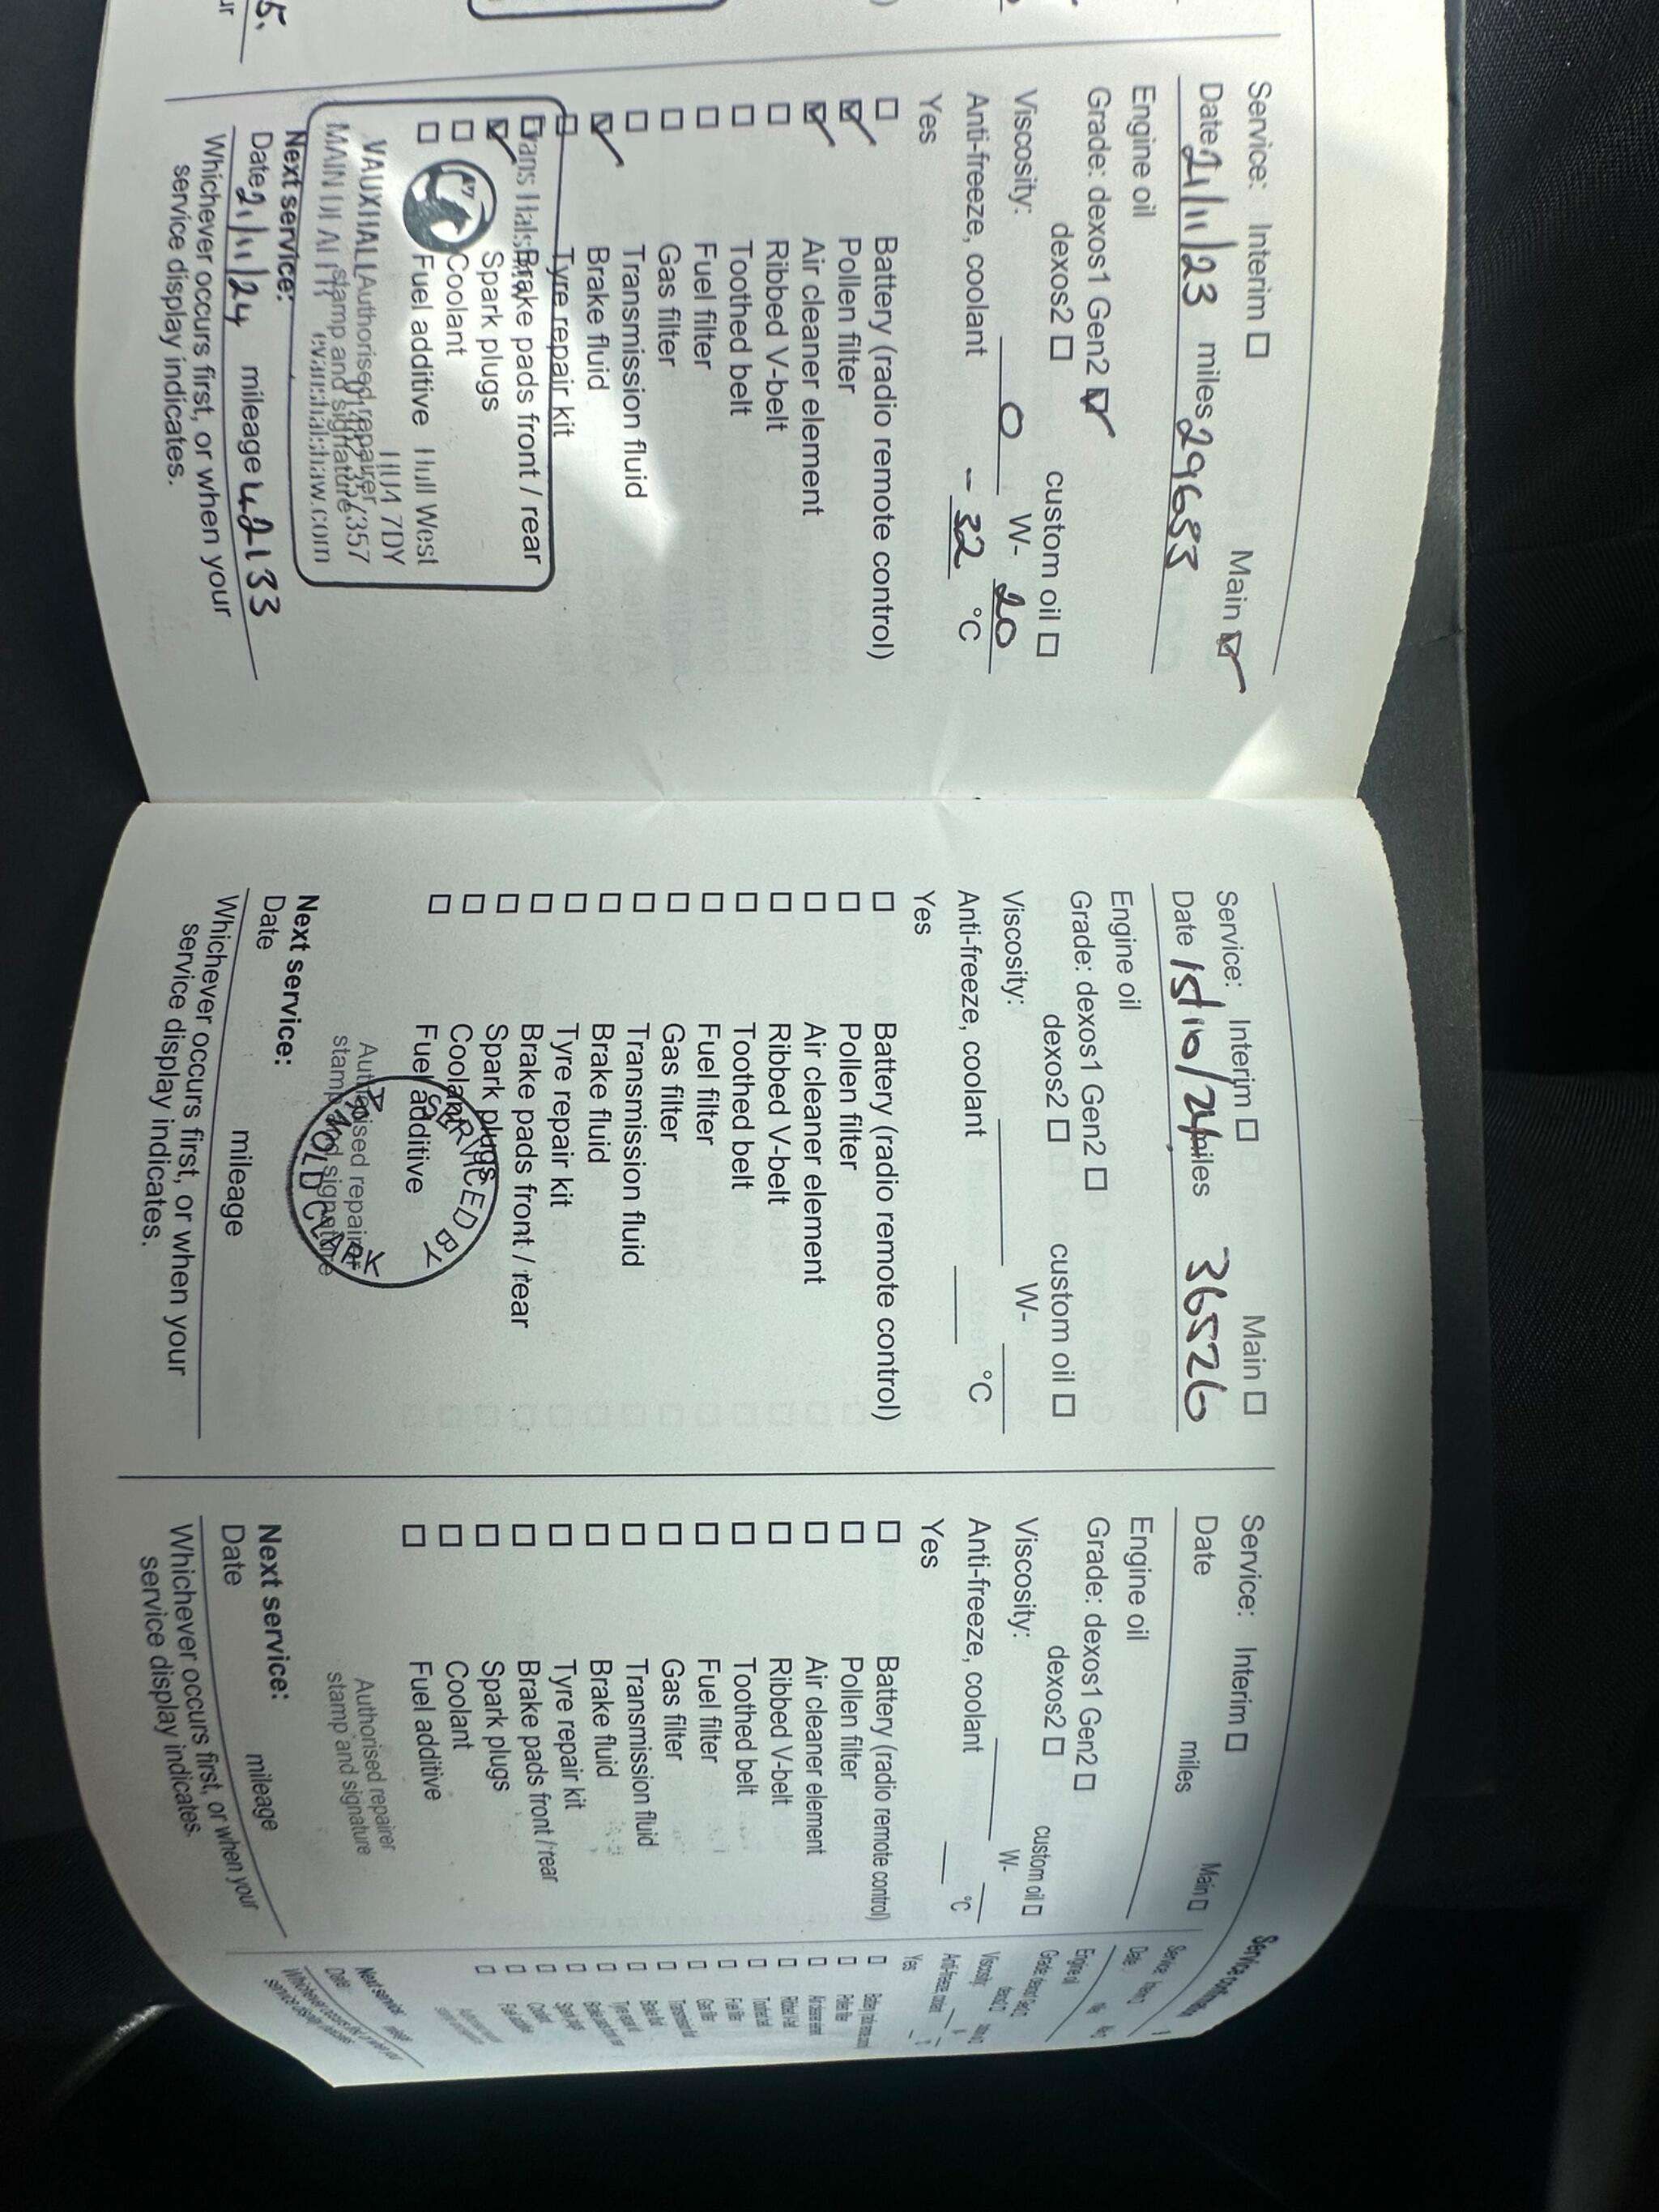 Service: Interim ☐ Main ☑
Date 21/11/23 miles 29653
Engine oil
Grade: dexos1 Gen2 ☑
dexos2 ☐ custom oil ☐
Viscosity: 0 W- 20
Anti-freeze, coolant -32 °C
Yes
☐ Battery (radio remote control)
☑ Pollen filter
☑ Air cleaner element
☐ Ribbed V-belt
☐ Toothed belt
☐ Fuel filter
☐ Gas filter
☐ Transmission fluid
☑ Brake fluid
☐ Tyre repair kit
☐ Brake pads front / rear
☑ Spark plugs
☐ Coolant
☐ Fuel additive
Hull West
HU4 7DY
VAUXHALL Authorised repairer
MAIN DEALER stamp and signature
evanshalshaw.com
Next service:
Date 21/11/24 mileage 42133
Whichever occurs first, or when your
service display indicates.
Service: Interim ☐ Main ☐
Date 15/10/24 miles 36526
Engine oil
Grade: dexos1 Gen2 ☐
dexos2 ☐ custom oil ☐
Viscosity: W-
Anti-freeze, coolant °C
Yes
☐ Battery (radio remote control)
☐ Pollen filter
☐ Air cleaner element
☐ Ribbed V-belt
☐ Toothed belt
☐ Fuel filter
☐ Gas filter
☐ Transmission fluid
☐ Brake fluid
☐ Tyre repair kit
☐ Brake pads front / rear
☐ Spark plugs
☐ Coolant
☐ Fuel additive
SERVICED BY
ARNOLD CLARK
Authorised repairer
stamp and signature
Next service:
Date mileage
Whichever occurs first, or when your
service display indicates.
Service: Interim ☐ Main ☐
Date miles
Engine oil
Grade: dexos1 Gen2 ☐
dexos2 ☐ custom oil ☐
Viscosity: W-
Anti-freeze, coolant °C
Yes
☐ Battery (radio remote control)
☐ Pollen filter
☐ Air cleaner element
☐ Ribbed V-belt
☐ Toothed belt
☐ Fuel filter
☐ Gas filter
☐ Transmission fluid
☐ Brake fluid
☐ Tyre repair kit
☐ Brake pads front / rear
☐ Spark plugs
☐ Coolant
☐ Fuel additive
Authorised repairer
stamp and signature
Next service:
Date mileage
Whichever occurs first, or when your
service display indicates.